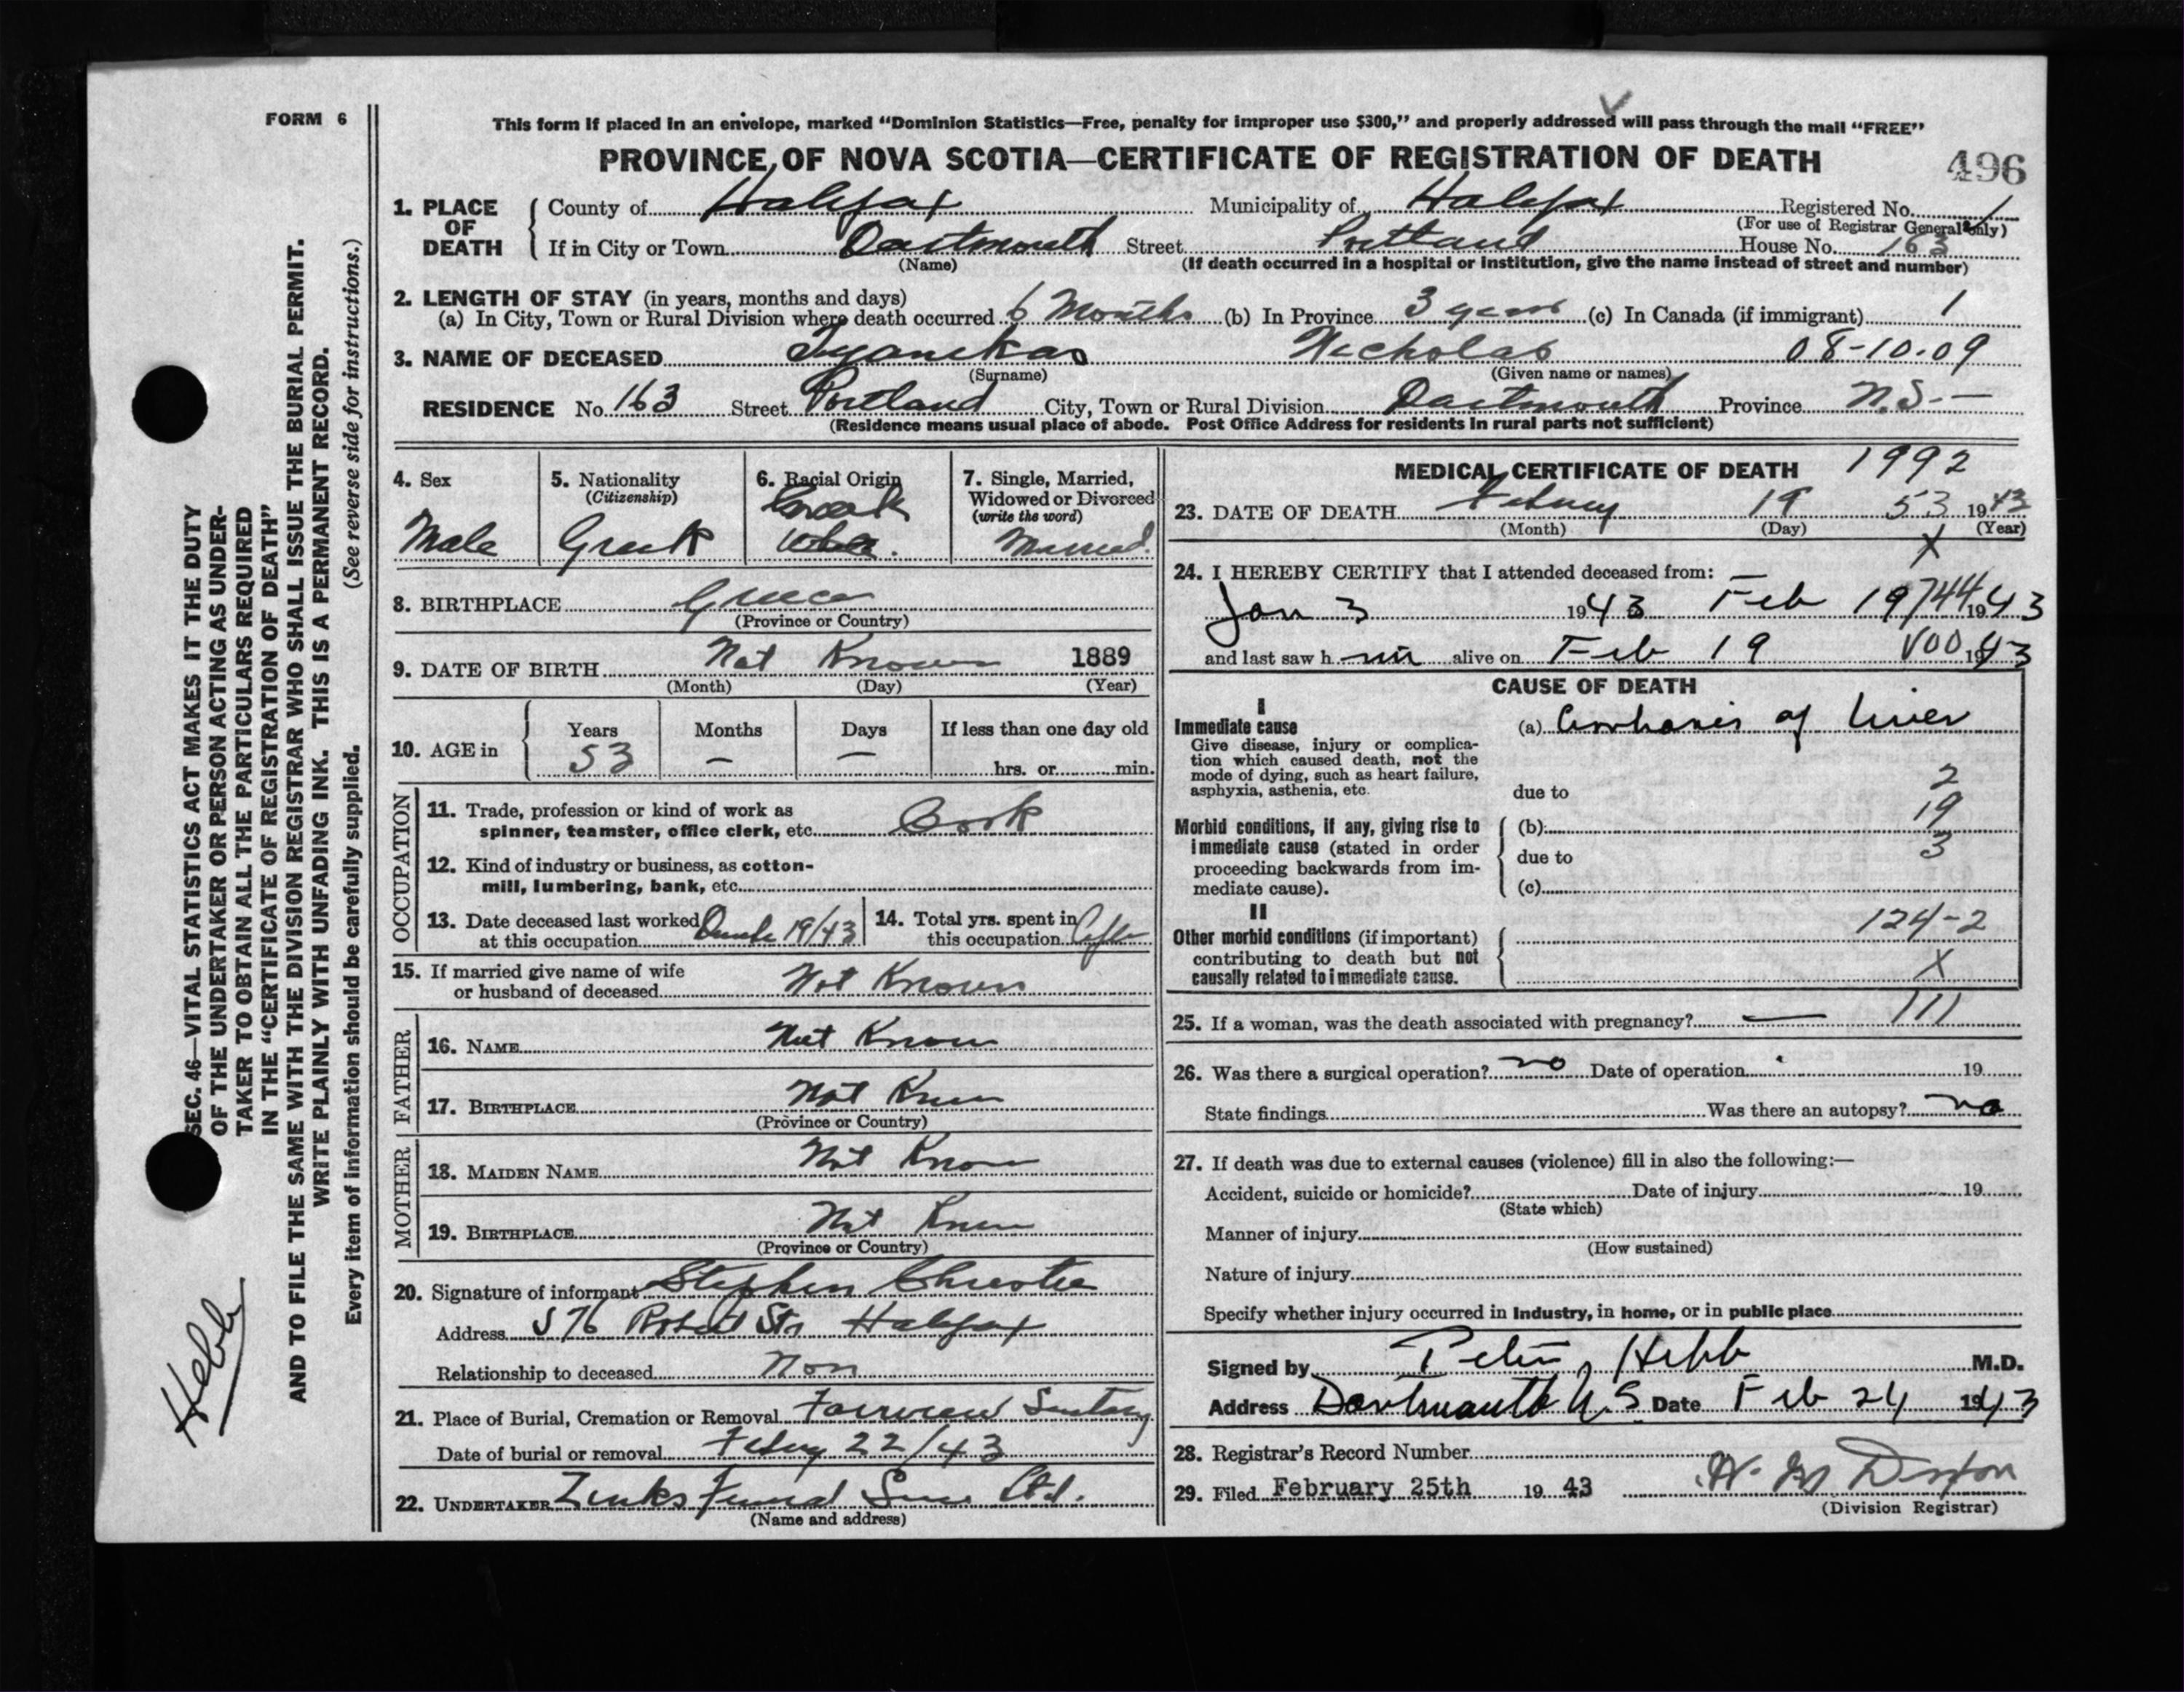 FORM 6
This form if placed in an envelope, marked “Dominion Statistics—Free, penalty for improper use $300,” and properly addressed will pass through the mail “FREE”
PROVINCE OF NOVA SCOTIA—CERTIFICATE OF REGISTRATION OF DEATH 496
1. PLACE OF DEATH County of Halifax Municipality of Halifax Registered No. 1
(For use of Registrar General only)
If in City or Town Dartmouth Street Portland House No. 163
(Name) (If death occurred in a hospital or institution, give the name instead of street and number)
2. LENGTH OF STAY (in years, months and days)
(a) In City, Town or Rural Division where death occurred 6 Months (b) In Province 3 years (c) In Canada (if immigrant) 1
3. NAME OF DECEASED Nicholas 08-10-09
(Surname) (Given name or names)
RESIDENCE No. 163 Street Portland City, Town or Rural Division Dartmouth Province N.S.—
(Residence means usual place of abode. Post Office Address for residents in rural parts not sufficient)
4. Sex Male
5. Nationality (Citizenship) Greek
6. Racial Origin Greek White.
7. Single, Married, Widowed or Divorced (write the word) Married.
8. BIRTHPLACE Greece
(Province or Country)
9. DATE OF BIRTH Not Known 1889
(Month) (Day) (Year)
10. AGE in Years 53 Months — Days — If less than one day old hrs. or min.
OCCUPATION
11. Trade, profession or kind of work as spinner, teamster, office clerk, etc. Cook
12. Kind of industry or business, as cotton-mill, lumbering, bank, etc.
13. Date deceased last worked at this occupation 19/43
14. Total yrs. spent in this occupation
15. If married give name of wife or husband of deceased Not Known
FATHER
16. NAME Not Known
17. BIRTHPLACE Not Known
(Province or Country)
MOTHER
18. MAIDEN NAME Not Known
19. BIRTHPLACE Not Known
(Province or Country)
20. Signature of informant Stephen Christie
Address 576 Robert Str Halifax
Relationship to deceased Non
21. Place of Burial, Cremation or Removal Fairview
Date of burial or removal Febury 22/43
22. UNDERTAKER Zinks Ltd.
(Name and address)
MEDICAL CERTIFICATE OF DEATH 1992
23. DATE OF DEATH 19 53 1943
(Month) (Day) (Year)
X
24. I HEREBY CERTIFY that I attended deceased from:
Jan 3 1943 Feb 19 744 1943
and last saw h im alive on Feb 19 V00 1943
CAUSE OF DEATH
I
Immediate cause
Give disease, injury or complication which caused death, not the mode of dying, such as heart failure, asphyxia, asthenia, etc.
(a) of Liver
due to 2
Morbid conditions, if any, giving rise to immediate cause (stated in order proceeding backwards from immediate cause).
(b) 19
due to 3
(c)
II
Other morbid conditions (if important) contributing to death but not causally related to immediate cause.
124-2
X
25. If a woman, was the death associated with pregnancy? — 111
26. Was there a surgical operation? no Date of operation 19
State findings Was there an autopsy? no
27. If death was due to external causes (violence) fill in also the following:—
Accident, suicide or homicide? Date of injury 19
(State which)
Manner of injury
(How sustained)
Nature of injury
Specify whether injury occurred in Industry, in home, or in public place
Signed by Hebb M.D.
Address Dartmouth N.S. Date Feb 24 1943
28. Registrar’s Record Number
29. Filed February 25th 19 43
(Division Registrar)
SEC. 46—VITAL STATISTICS ACT MAKES IT THE DUTY
OF THE UNDERTAKER OR PERSON ACTING AS UNDER-
TAKER TO OBTAIN ALL THE PARTICULARS REQUIRED
IN THE “CERTIFICATE OF REGISTRATION OF DEATH”
AND TO FILE THE SAME WITH THE DIVISION REGISTRAR WHO SHALL ISSUE THE BURIAL PERMIT.
WRITE PLAINLY WITH UNFADING INK. THIS IS A PERMANENT RECORD.
Every item of information should be carefully supplied. (See reverse side for instructions.)
Hebb